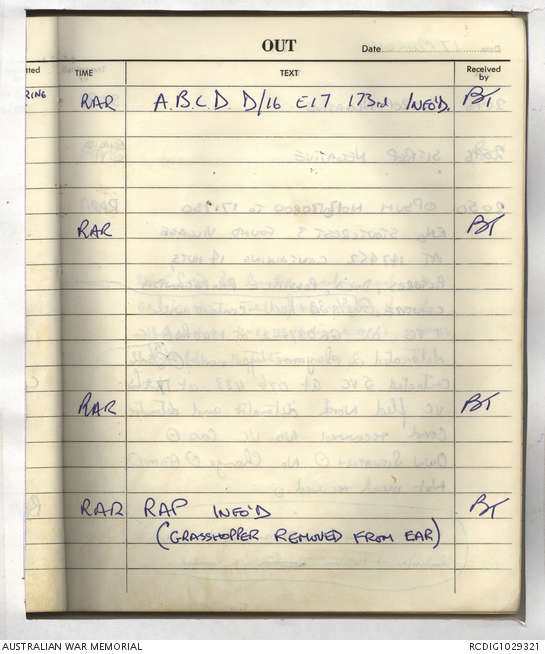 OUT
Date
TIME
TEXT
Received by
RAR A.B.C.D. D/16 E17 173rd INFO'D. BT
RAR BT
RAR BT
RAR RAP INFO'D BT
(GRASSHOPPER REMOVED FROM EAR)
AUSTRALIAN WAR MEMORIAL
RCDIG1029321